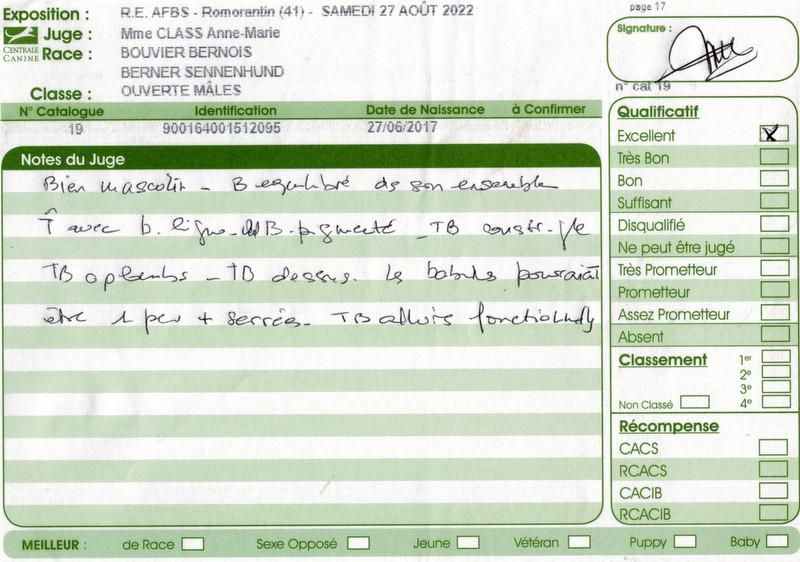 Exposition : R.E. AFBS - Romorantin (41) - SAMEDI 27 AOÛT 2022
page 17
CENTRALE CANINE
Juge : Mme CLASS Anne-Marie
Race : BOUVIER BERNOIS
BERNER SENNENHUND
Classe : OUVERTE MÂLES
Signature :
n° cat 19
N° Catalogue Identification Date de Naissance à Confirmer
19 900164001512095 27/06/2017
Notes du Juge
Bien masculin - B equilibré ds son ensemble
T avec b. ligne B. pigmenté - TB constr. gle
TB aplombs - TB dessus. Les babines pourraient
être 1 peu + serrées - TB allures
Qualificatif
Excellent X
Très Bon
Bon
Suffisant
Disqualifié
Ne peut être jugé
Très Prometteur
Prometteur
Assez Prometteur
Absent
Classement 1er
2e
3e
Non Classé 4e
Récompense
CACS
RCACS
CACIB
RCACIB
MEILLEUR : de Race Sexe Opposé Jeune Vétéran Puppy Baby